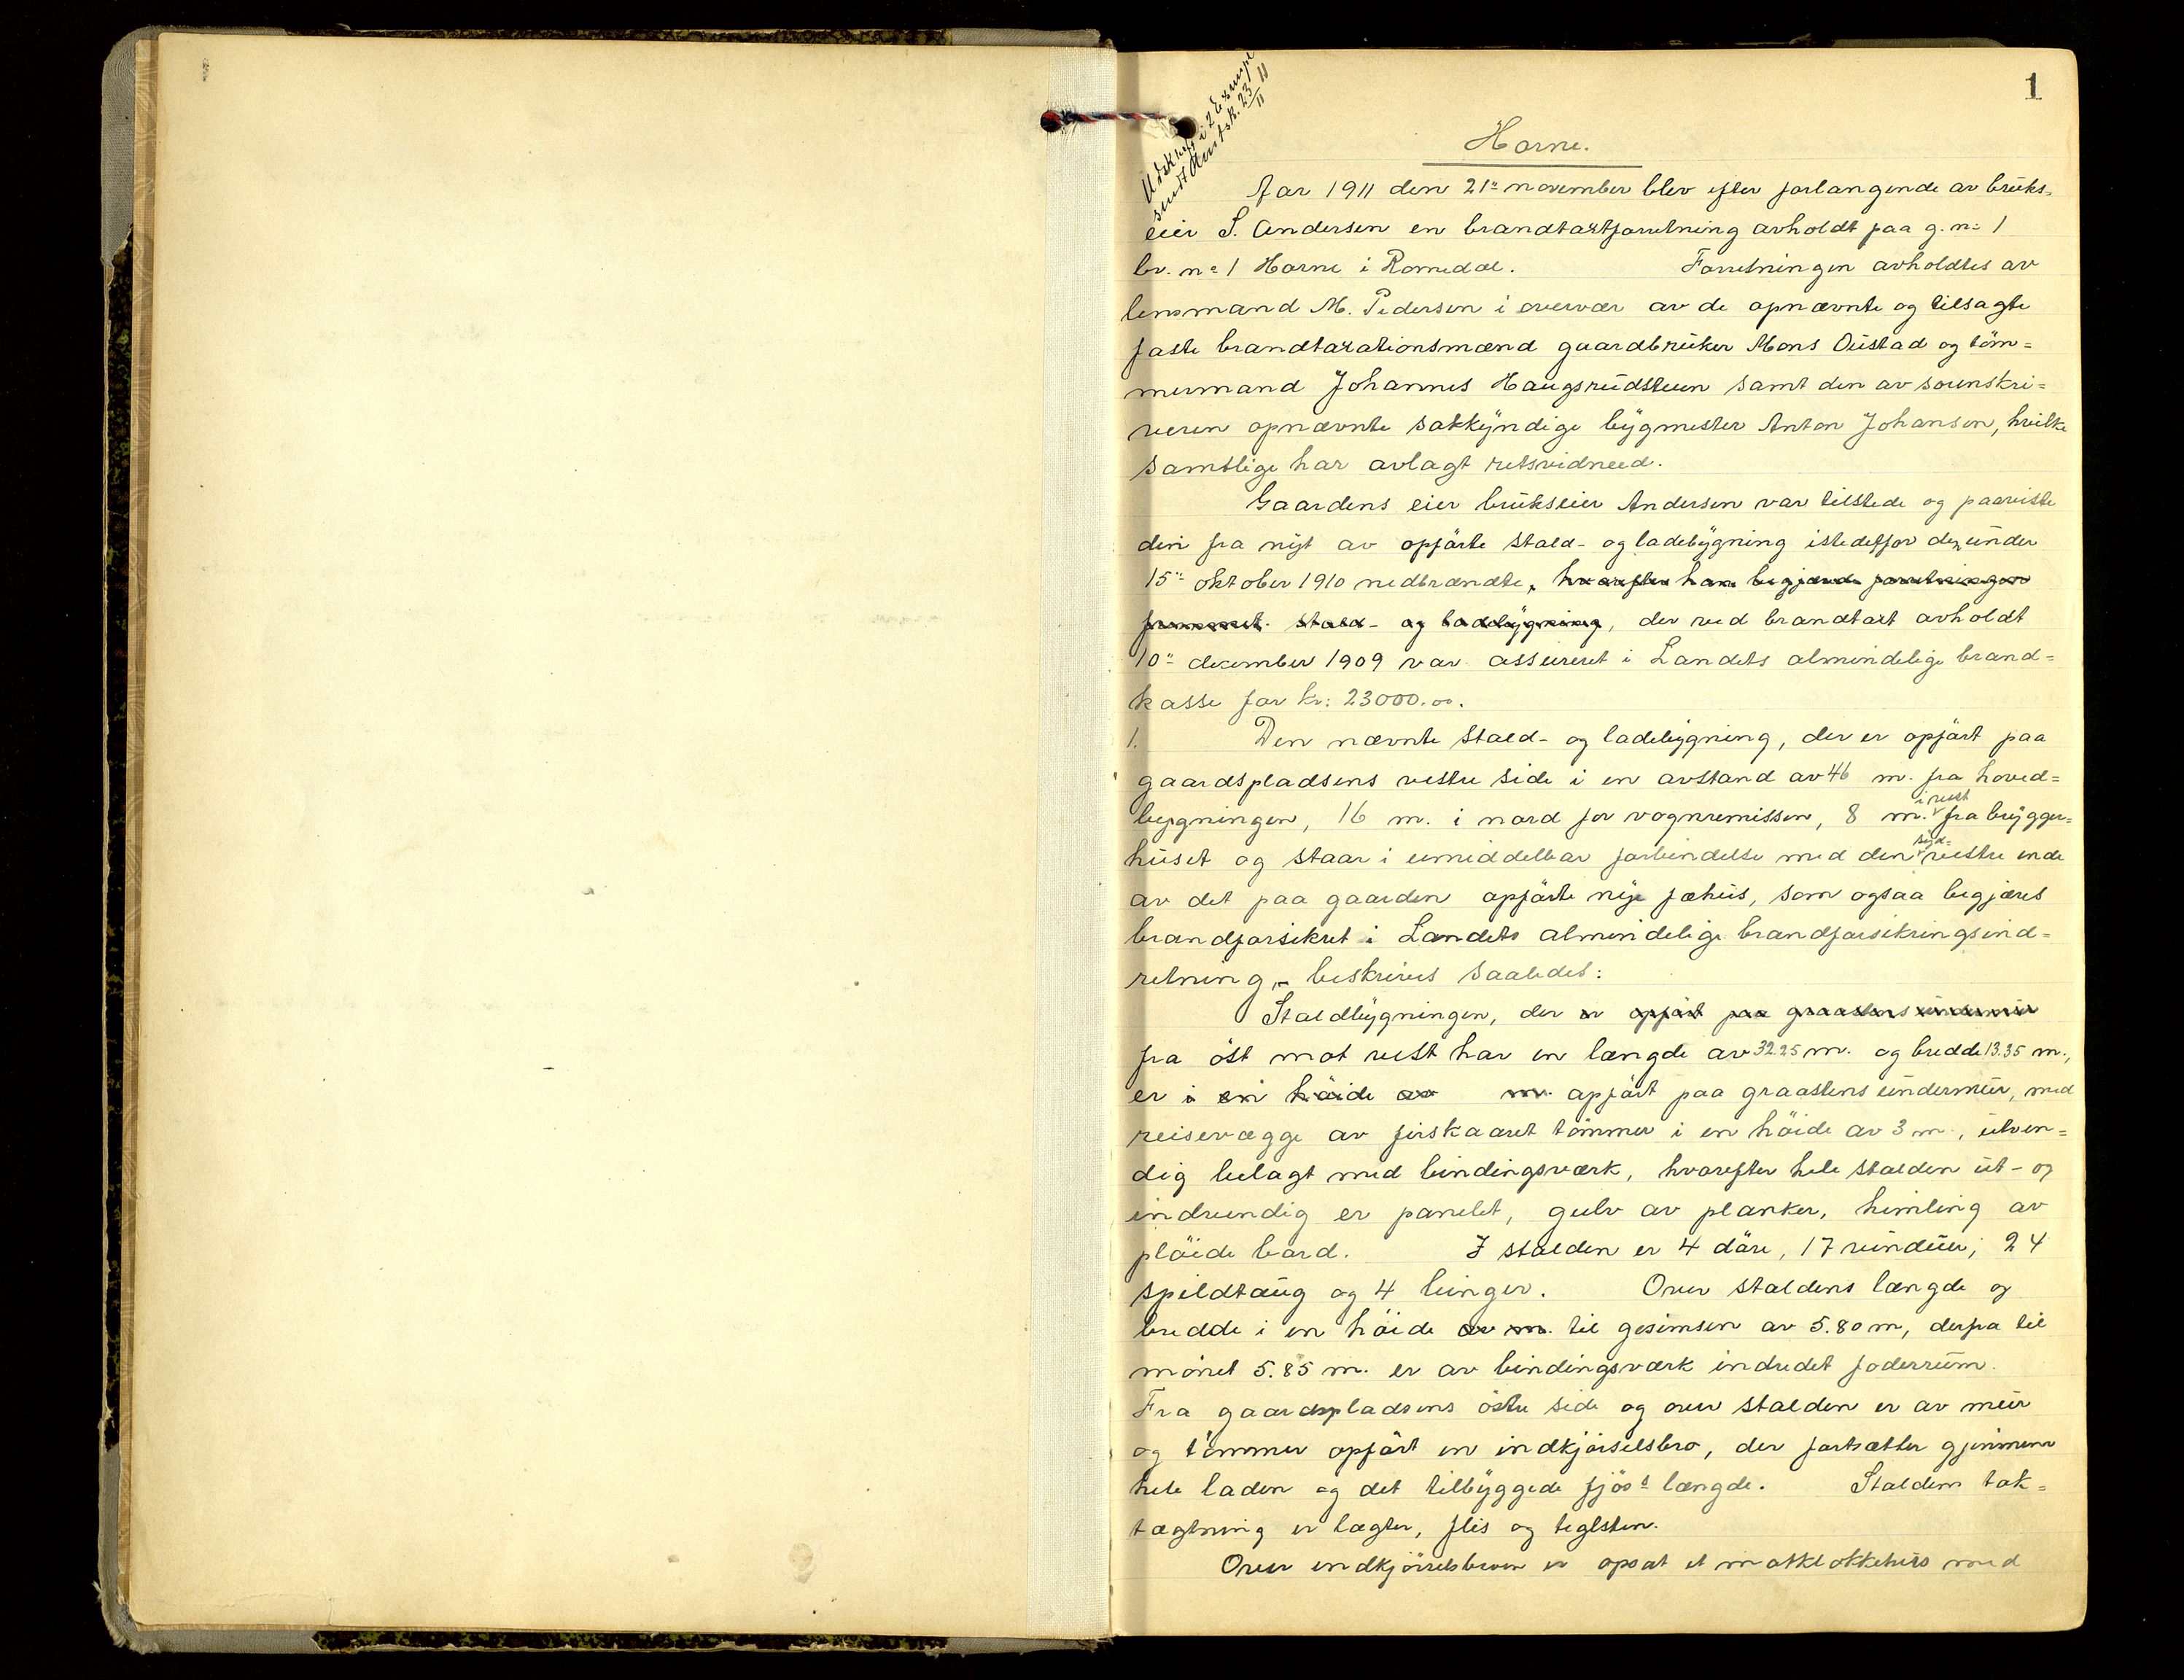 1
Utskrift i 2 Exempl
sendt Amtsk. 23/11 11
Horne.
Aar 1911 den 21" november blev efter forlangende av bruks-
eier S. Andersen en brandtaxtforretning avholdt paa g. n: 1
br. n: 1 Horne i Romedal. Forretningen avholdtes av
lensmand M. Pedersen i overvær av de opnævnte og tilsagte
faste brandtaxationsmænd gaardbruker Mons Oustad og töm=
mermand Johannes Haugsrudsteen samt den av sorenskri=
veren opnævnte sakkyndige bygmester Anton Johansen, hvilke
samtlige har avlagt retsvidneed.
Gaardens eier brukseier Andersen var tilstede og paaviste
den fra nyt av opförte stald- og ladebygning istedetfor den under
15" oktober 1910 nedbrændte, hvorefter han begjærede forretningen
fremmet. stald- og ladebygning, der ved brandtaxt avholdt
10" december 1909 var assureret i Landets almindelige brand=
kasse for kr: 23000.00.
1. Den nævnte stald- og ladebygning, der er opfört paa
gaardspladsens vestre side i en avstand av 46 m. fra hoved=
bygningen, 16 m. i nord for vognremissen, 8 m. i vest fra brygger=
huset og staar i umiddelbar forbindelse med den syd= vestre ende
av det paa gaarden opförte nye fæhus, som ogsaa begjæres
brandforsikret i Landets almindelige brandforsikringsind=
retning, - beskrives saaledes:
Staldbygningen, der er opfört paa graastens undermur
fra öst mot vest har en længde av 32.25 m. og bredde 13.35 m.,
er i en höide av m. opfört paa graastens undermur, med
reisevægge av firskaaret tömmer i en höide av 3 m., utven=
dig belagt med bindingsværk, hvorefter hele stalden ut- og
indvendig er panelet, gulv av planker, himling av
plöide bord. I stalden er 4 döre, 17 vinduer, 24
spildtaug og 4 binger. Over staldens længde og
bredde i en höide av m. til gesimsen av 5.80 m, derfra til
mönet 5.85 m. er av bindingsværk indredet foderrum.
Fra gaardspladsens östre side og over stalden er av mur
og tömmer opfört en indkjörselsbro, der fortsætter gjennem
hele laden og det tilbyggede fjös's længde. Staldens tak=
tægtning er lægter, flis og teglsten.
Over indkjörselsbroen er opsat et matklokkehus med